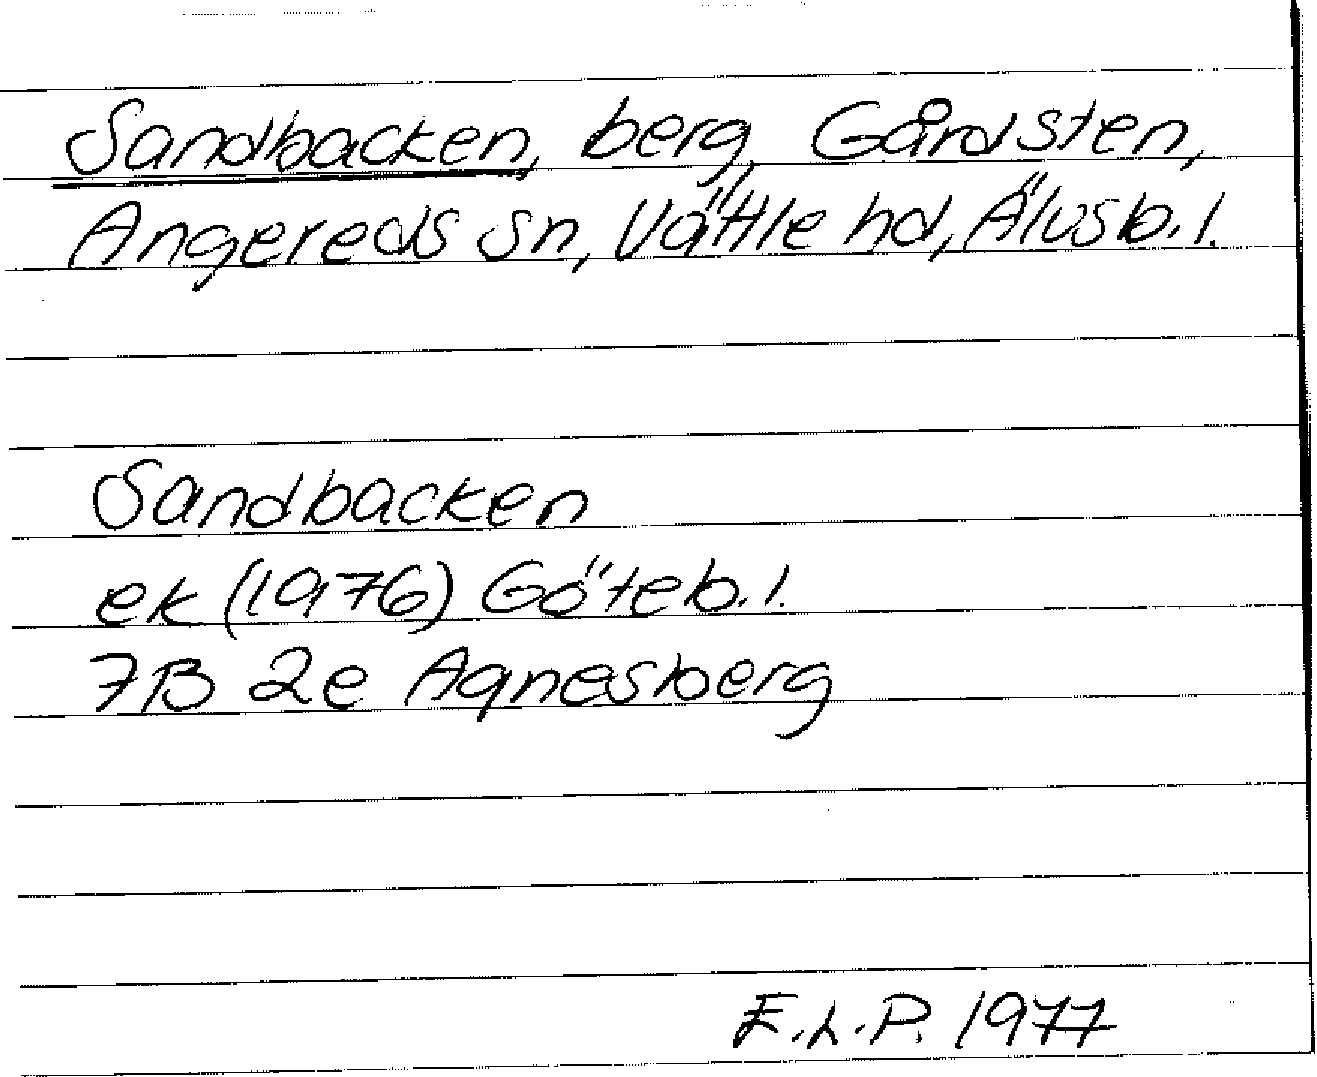 Sandbacken, berg, Gårdsten,
Angereds sn, Vättle hd, Älvsb. l.
Sandbacken
ek (1976) Göteb. l.
7B 2e Agnesberg
E.L.P. 1977